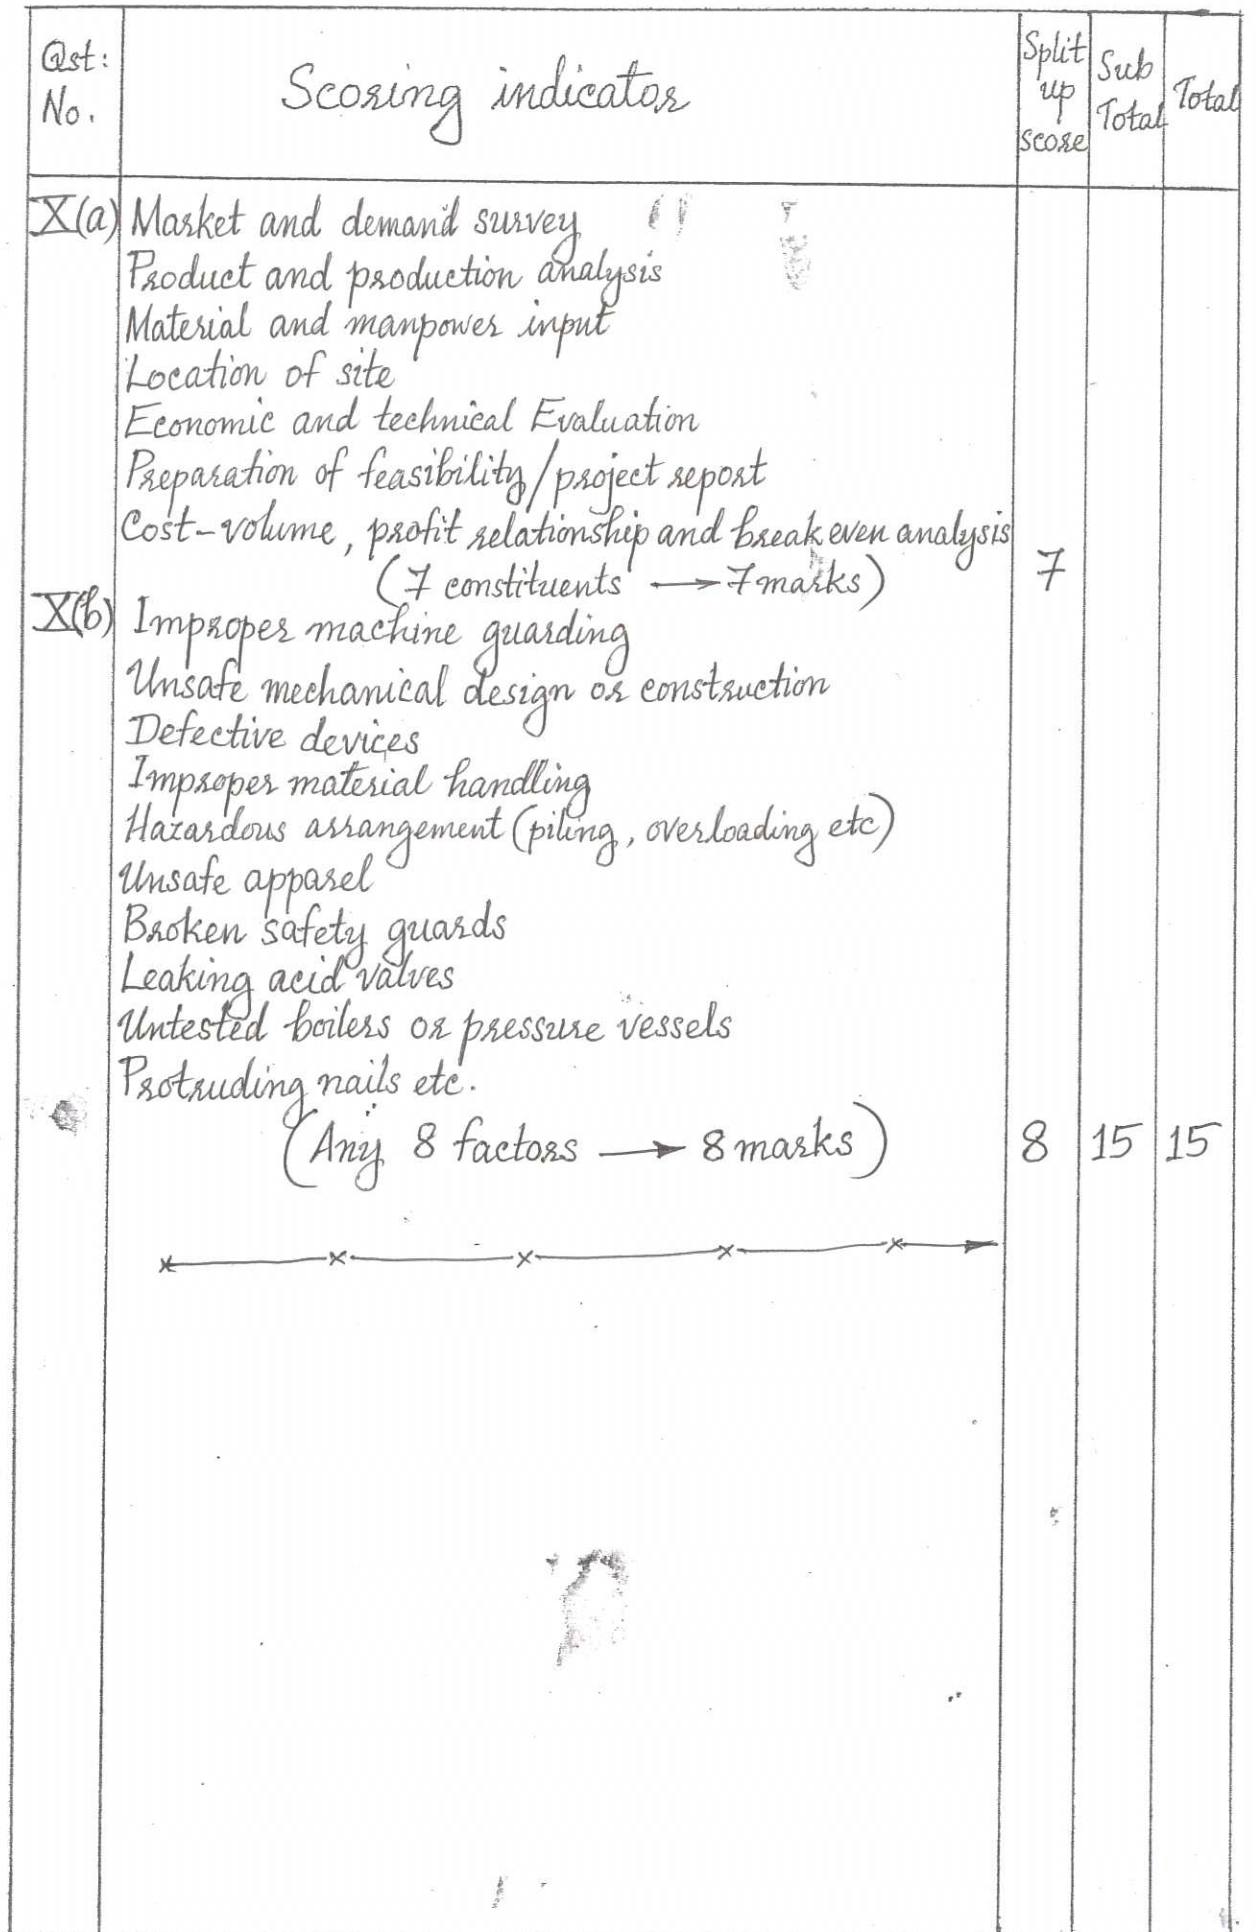 Qst: No.
Scoring indicator
Split up score
Sub Total
Total
X(a) Market and demand survey
Product and production analysis
Material and manpower input
Location of site
Economic and technical Evaluation
Preparation of feasibility/project report
Cost-volume, profit relationship and break even analysis
(7 constituents → 7 marks) 7
X(b) Improper machine guarding
Unsafe mechanical design or construction
Defective devices
Improper material handling
Hazardous arrangement (piling, overloading etc)
Unsafe apparel
Broken safety guards
Leaking acid valves
Untested boilers or pressure vessels
Protruding nails etc.
(Any 8 factors → 8 marks) 8 15 15